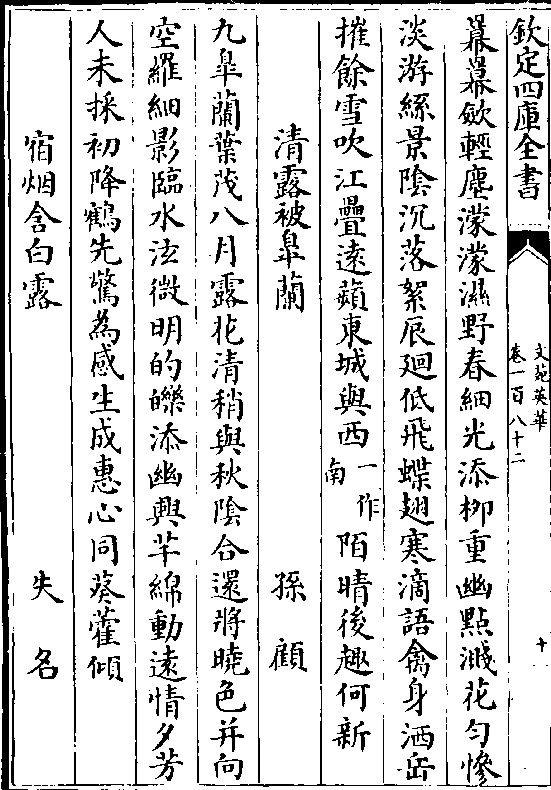 欽定四庫全書
文苑英華
卷一百八十二
十
羃羃斂輕塵濛濛濕野春細光添柳重幽點濺花勻慘
淡游絲景陰沉落絮辰廻低飛蝶翅寒滴語禽身洒岳
摧餘雪吹江疊遠蘋東城與西一作南陌晴後趣何新
清露被臯蘭 孫顧
九臯蘭葉茂八月露花清稍與秋陰合還將曉色并向
空羅細影臨水泫微明的皪添幽興芊綿動遠情夕芳
人未採初降鶴先驚為感生成惠心同葵藿傾
宿烟含白露 失名